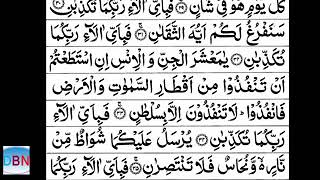 كُلَّ يَوْمٍ هُوَ فِيْ شَاْنٍ ﴿۲۹﴾ فَبِاَيِّ اٰلَآءِ رَبِّكُمَا تُكَذِّبٰنِ ﴿۳۰﴾
سَنَفْرُغُ لَكُمْ اَيُّهَ الثَّقَلٰنِ ﴿۳۱﴾ فَبِاَيِّ اٰلَآءِ رَبِّكُمَا
تُكَذِّبٰنِ ﴿۳۲﴾ يٰمَعْشَرَ الْجِنِّ وَالْاِنْسِ اِنِ اسْتَطَعْتُمْ
اَنْ تَنْفُذُوْا مِنْ اَقْطَارِ السَّمٰوٰتِ وَالْاَرْضِ
فَانْفُذُوْا ؕ لَا تَنْفُذُوْنَ اِلَّا بِسُلْطٰنٍ ﴿۳۳﴾ فَبِاَيِّ اٰلَآءِ
رَبِّكُمَا تُكَذِّبٰنِ ﴿۳۴﴾ يُرْسَلُ عَلَيْكُمَا شُوَاظٌ مِّنْ
نَّارٍ ۙ وَّنُحَاسٌ فَلَا تَنْتَصِرٰنِ ﴿۳۵﴾ فَبِاَيِّ اٰلَآءِ رَبِّكُمَا
DBN